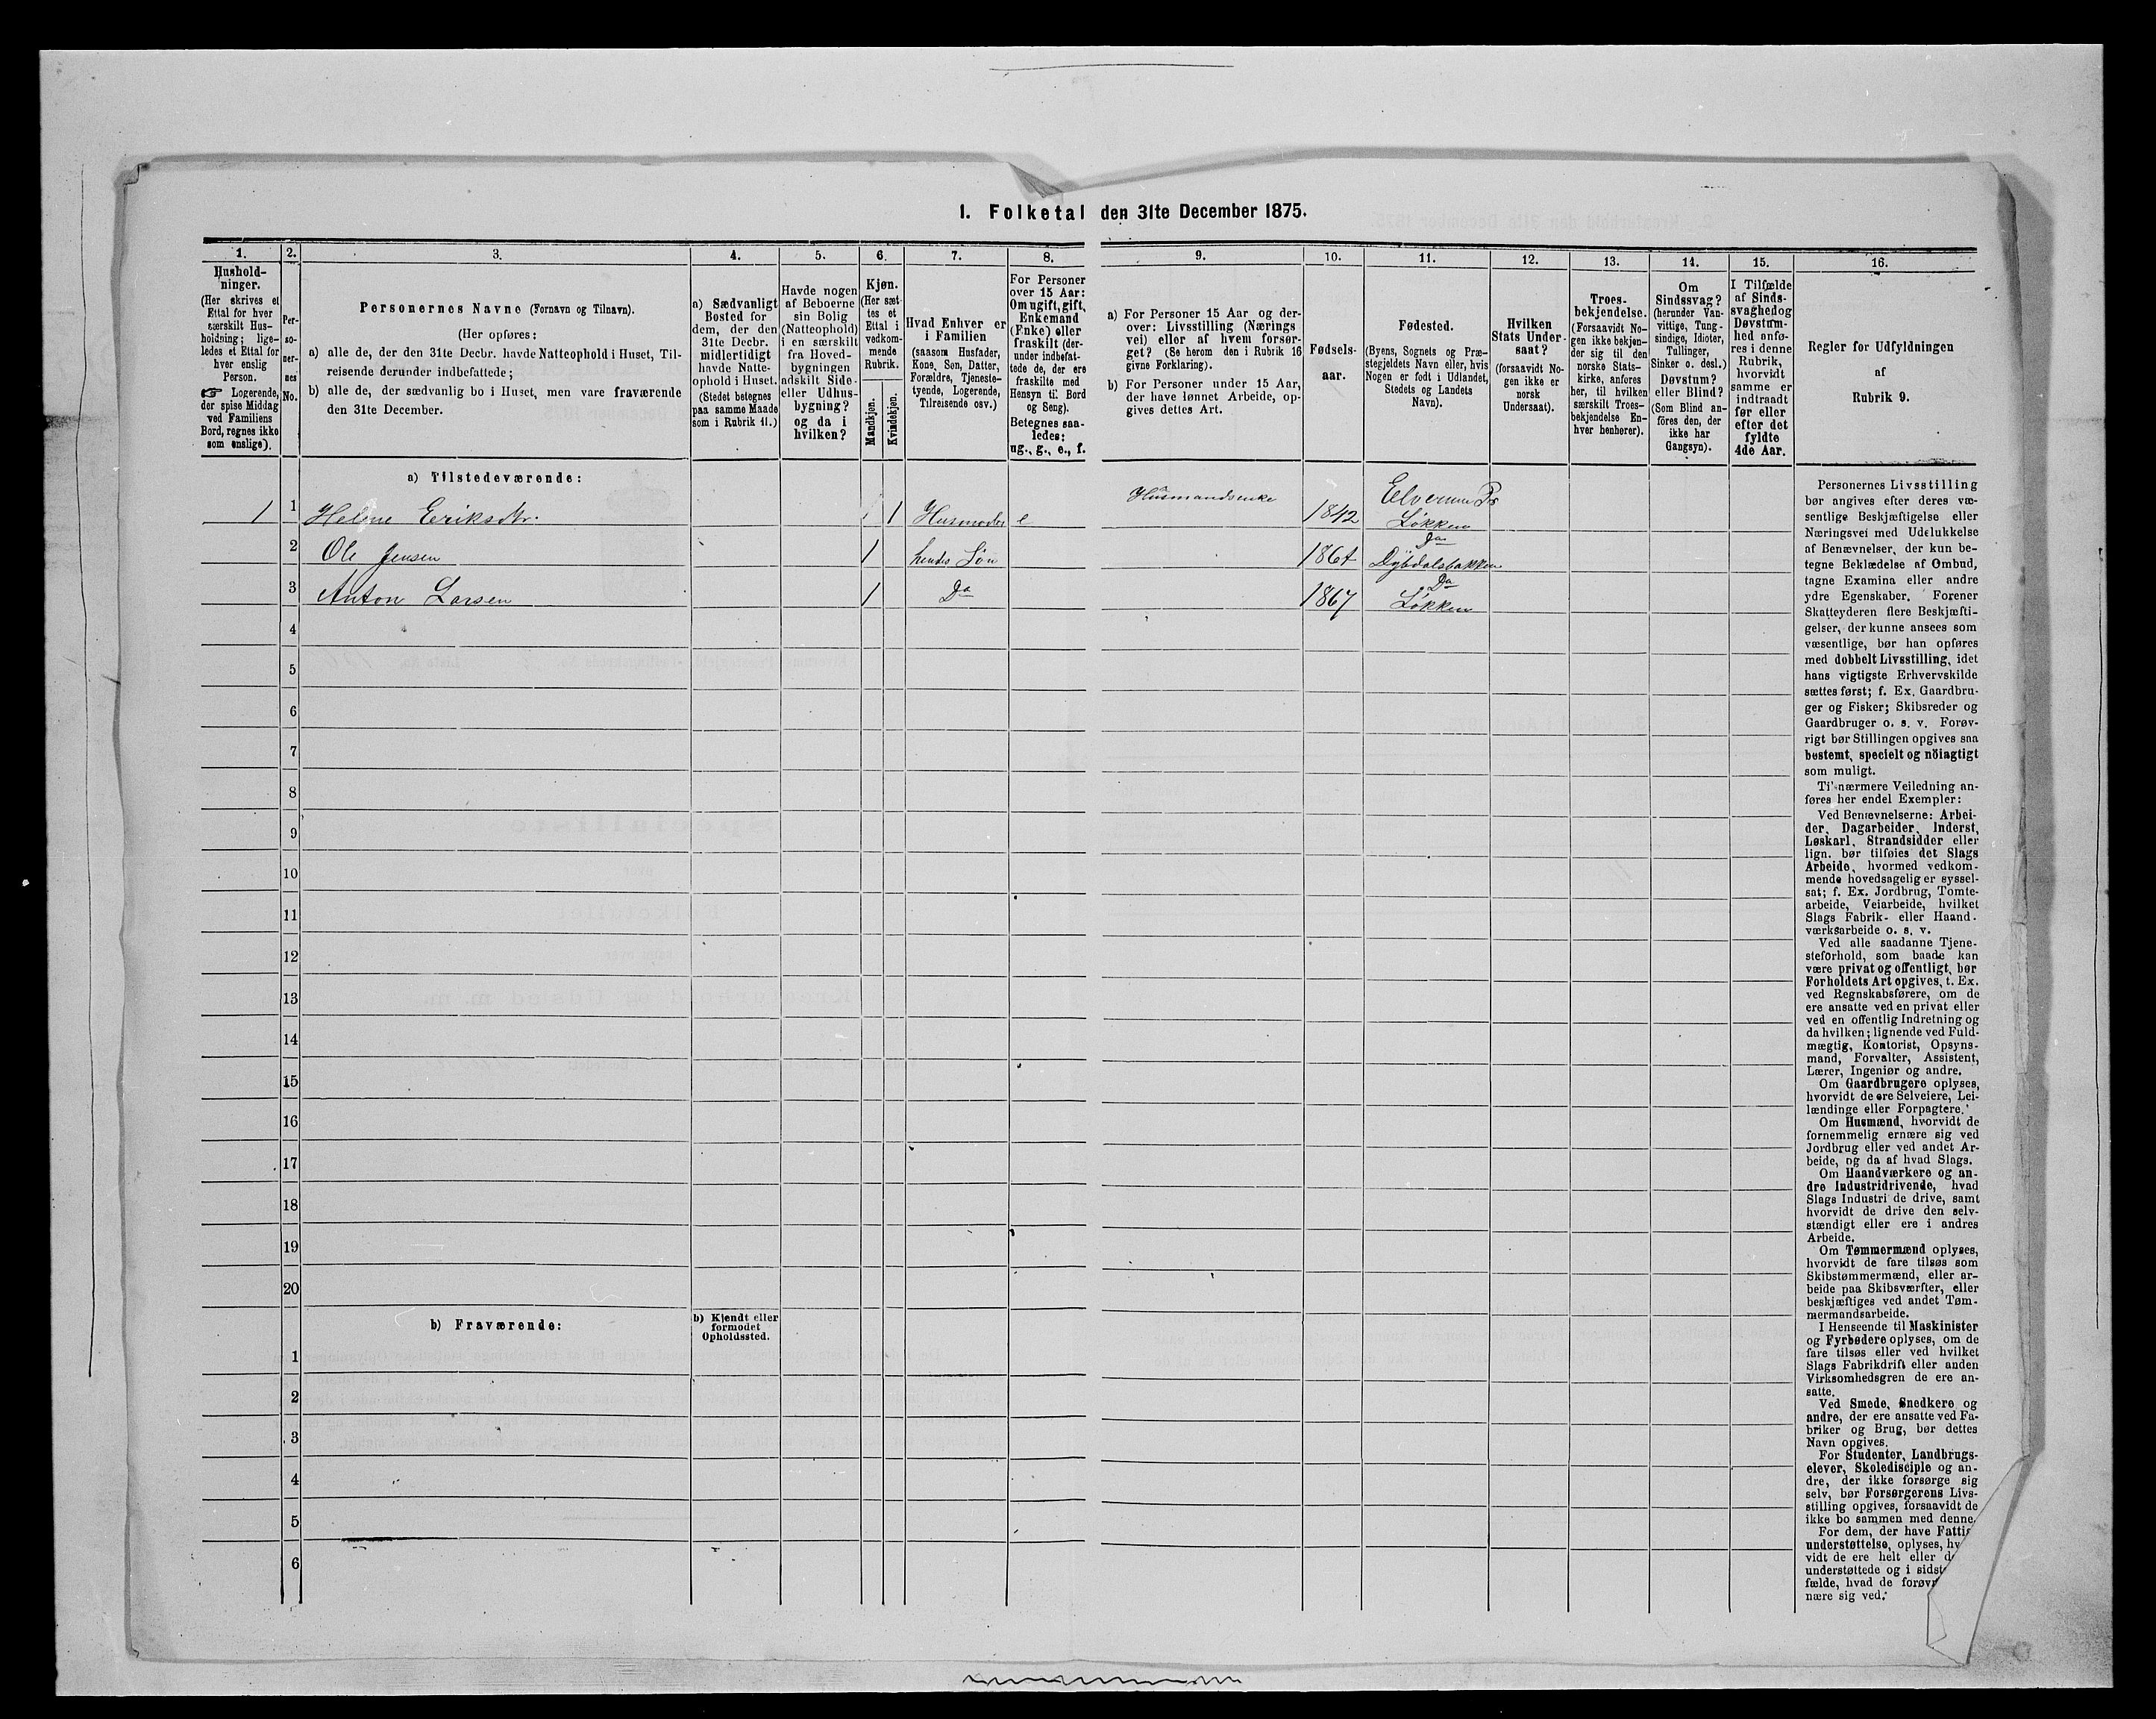 1. Folketal den 31te December 1875.
1.
2.
3.
4.
5.
6.
7.
8.
9.
10.
11.
12.
13.
14.
15.
16.
Hushold-
ninger.
(Her skrives et
Ettal for hver
særskilt Hus-
holdning; lige-
ledes et Ettal for
hver enslig
Person.
☞ Logerende,
der spise Middag
ved Familiens
Bord, regnes ikke
som enslige).
Per-
so-
ner-
nes
No.
Personernes Navne (Fornavn og Tilnavn).
(Her opføres:
a) alle de, der den 31te Decbr. havde Natteophold i Huset, Til-
reisende derunder indbefattede;
b) alle de, der sædvanlig bo i Huset, men vare fraværende
den 31te December.
a) Sædvanligt
Bosted for
dem, der den
31te Decbr.
midlertidigt
havde Natte-
ophold i Huset.
(Stedet betegnes
paa samme Maade
som i Rubrik 11.)
Havde nogen
af Beboerne
sin Bolig
(Natteophold)
i en særskilt
fra Hoved-
bygningen
adskilt Side-
eller Udhus-
bygning?
og da i
hvilken?
Kjøn.
(Her sæt-
tes et
Ettal i
vedkom-
mende
Rubrik.
Mandkjøn.
Kvindekjøn.
Hvad Enhver er
i Familien
(saasom Husfader,
Kone, Søn, Datter,
Forældre, Tjeneste-
tyende, Logerende,
Tilreisende osv.)
For Personer
over 15 Aar:
Om ugift, gift,
Enkemand
(Enke) eller
fraskilt (der-
under indbefat-
tede de, der ere
fraskilte med
Hensyn til Bord
og Seng).
Betegnes saa-
ledes:
ug., g., e., f.
a) For Personer 15 Aar og der-
over: Livsstilling (Nærings
vei) eller af hvem forsør-
get? (Se herom den i Rubrik 16
givne Forklaring).
b) For Personer under 15 Aar,
der have lønnet Arbeide, op-
gives dettes Art.
Fødsels-
aar.
Fødested.
(Byens, Sognets og Præ-
stegjeldets Navn eller, hvis
Nogen er født i Udlandet,
Stedets og Landets
Navn).
Hvilken
Stats Under-
saat?
(forsaavidt No-
gen ikke er
norsk
Undersaat).
Troes-
bekjendelse.
(Forsaavidt No-
gen ikke bekjen-
der sig til den
norske Stats-
kirke, anføres
her, til hvilken
særskilt Troes-
bekjendelse En-
hver henhører).
Om
Sindssvag?
(herunder Van-
vittige, Tung-
sindige, Idioter,
Tullinger,
Sinker o. desl.)
Døvstum?
eller Blind?
(Som Blind an-
føres den, der
ikke har
Gangsyn).
I Tilfælde
af Sinds-
svaghed og
Døvstum-
hed anfø-
res i denne
Rubrik,
hvorvidt
samme er
indtraadt
før eller
efter det
fyldte
4de Aar.
Regler for Udfyldningen
af
Rubrik 9.
a) Tilstedeværende:
1 1 Helene Eriksdtr. 1 Husmoder e Husmandsenke 1842 Elverum Pr Løkken
2 Ole Jensen 1 hendes Søn 1864 Do Dybdalsbakken
3 Anton Larsen 1 Do 1867 Do Løkken
4
5
6
7
8
9
10
11
12
13
14
15
16
17
18
19
20
b) Fraværende:
b) Kjendt eller
formodet
Opholdssted.
1
2
3
4
5
6
Personernes Livsstilling
bør angives efter deres væ-
sentlige Beskjæftigelse eller
Næringsvei med Udelukkelse
af Benævnelser, der kun be-
tegne Beklædelse af Ombud,
tagne Examina eller andre
ydre Egenskaber. Forener
Skatteyderen flere Beskjæfti-
gelser, der kunne ansees som
væsentlige, bør han opføres
med dobbelt Livsstilling, idet
hans vigtigste Erhvervskilde
sættes først; f. Ex. Gaardbru-
ger og Fisker; Skibsreder og
Gaardbruger o. s. v. Forøv-
rigt bør Stillingen opgives saa
bestemt, specielt og nöiagtigt
som muligt.
Til nærmere Veiledning an-
føres her endel Exempler:
Ved Benævnelserne: Arbei-
der, Dagarbeider, Inderst,
Løskarl, Strandsidder eller
lign. bør tilføies det Slags
Arbeide, hvormed vedkom-
mende hovedsagelig er syssel-
sat; f. Ex. Jordbrug, Tomte-
arbeide, Veiarbeide, hvilket
Slags Fabrik- eller Haand-
værksarbeide o. s. v.
Ved alle saadanne Tjene-
steforhold, som baade kan
være privat og offentligt, bør
Forholdets Art opgives, t. Ex.
ved Regnskabsførere, om de
ere ansatte ved en privat eller
ved en offentlig Indretning og
da hvilken; lignende ved Fuld-
mægtig, Kontorist, Opsyns-
mand, Forvalter, Assistent,
Lærer, Ingeniør og andre.
Om Gaardbrugere oplyses,
hvorvidt de ere Selveiere, Lei-
lændinge eller Forpagtere.
Om Husmænd, hvorvidt de
fornemmelig ernære sig ved
Jordbrug eller ved andet Ar-
beide, og da af hvad Slags.
Om Haandværkere og an-
dre Industridrivende, hvad
Slags Industri de drive, samt
hvorvidt de drive den selv-
stændigt eller ere i andres
Arbeide.
Om Tømmermænd oplyses,
hvorvidt de fare tilsøs som
Skibstømmermænd, eller ar-
beide paa Skibsværfter, eller
beskjæftiges ved andet Tøm-
mermandsarbeide.
I Henseende til Maskinister
og Fyrbødere oplyses, om de
fare tilsøs eller ved hvilket
Slags Fabrikdrift eller anden
Virksomhedsgren de ere an-
satte.
Ved Smede, Snedkere og
andre, der ere ansatte ved Fa-
briker og Brug, bør dettes
Navn opgives.
For Studenter, Landbrugs-
elever, Skoledisciple og an-
dre, der ikke forsørge sig
selv, bør Forsørgerens Livs-
stilling opgives, forsaavidt de
ikke bo sammen med denne.
For dem, der have Fattig
understøttelse, oplyses, hv
vidt de ere helt eller d
understøttede og i sidst
fælde, hvad de forøv
nære sig ved.